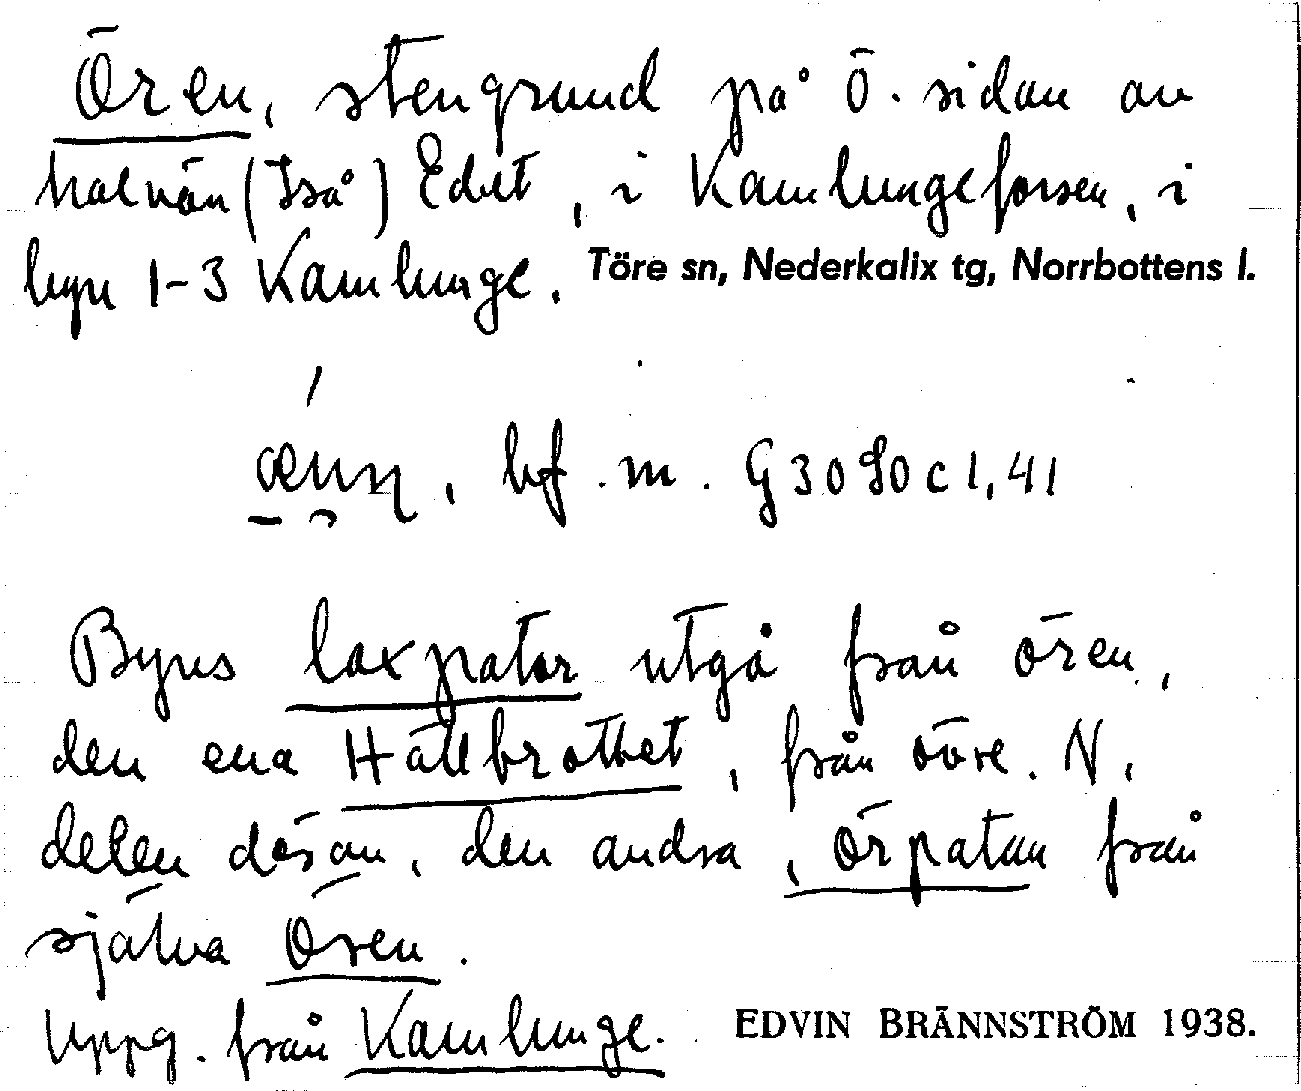 Ören, stengrund på Ö. sidan av
halvön (Iså) Edet, i Kamlungeforsen, i
byn 1-3 Kamlunge. Töre sn, Nederkalix tg, Norrbottens l.
bf. m. G 30 90 c 1, 41
Byns laxpator utgå från ören,
den ena Hällbrottet, från övre. N.
delen därav, den andra, örpatan från
själva Ören.
Uppg. från Kamlunge. EDVIN BRÄNNSTRÖM 1938.